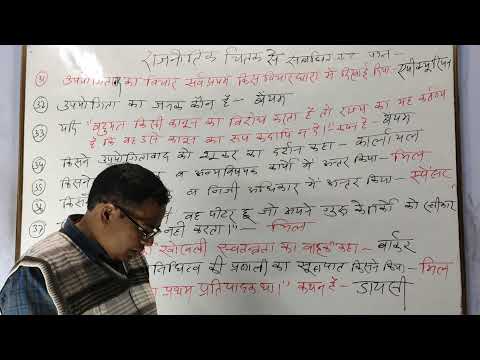 राजनीतिक चिंतक से संबंधित
31 उपयोगिता का विचार सर्वप्रथम किस विचारधारा में दिखाई दिया- एपीक्यूरियन
32 उपयोगिता का जनक कौन है - बेंथम
33 यदि "बहुमत किसी कानून का विरोध करता है तो राज्य का यह कर्तव्य
है कि वह उसे कानून का रूप कदापि न दे।" कथन है - बेंथम
34 किसने उपयोगितावाद को सूअर का दर्शन कहा - कार्लायल
35 किसने व अन्यविषयक कार्यों में अन्तर किया - मिल
36 किसने व निजी अधिकार में अन्तर किया - स्पेंसर
37 वह पीटर हूं जो अपने गुरु के को स्वीकार
नहीं करता।" - मिल
"खोखली स्वतन्त्रता का वाहक" कहा - बार्कर
की प्रणाली का सूत्रपात किसने किया - मिल
प्रथम प्रतिपादक था।" कथन है - डायसी